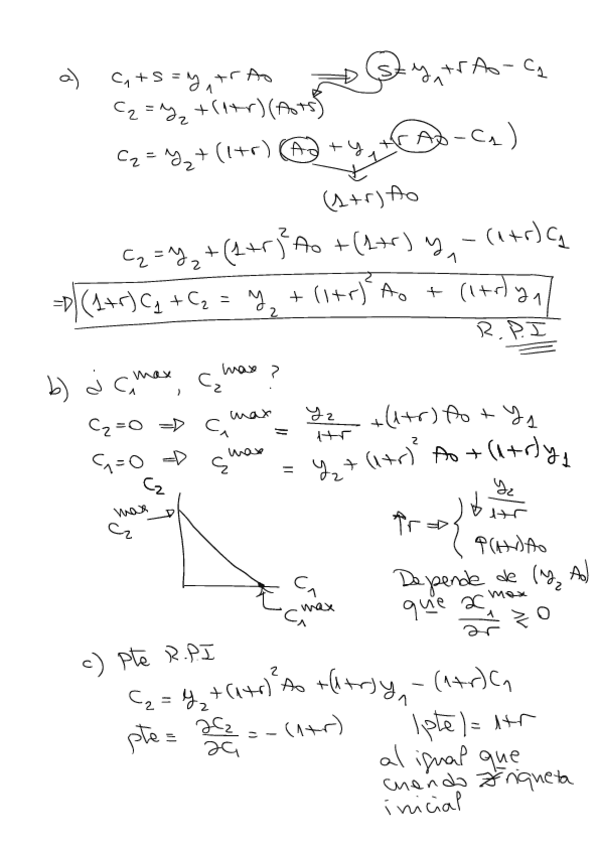 a) C₁ + s = y₁ + r A₀ ⇒ s = y₁ + r A₀ - C₁
C₂ = y₂ + (1+r)(A₀+s)
C₂ = y₂ + (1+r) (A₀ + y₁ + r A₀ - C₁)
(1+r)A₀
C₂ = y₂ + (1+r)² A₀ + (1+r) y₁ - (1+r) C₁
⇒ (1+r) C₁ + C₂ = y₂ + (1+r)² A₀ + (1+r) y₁
R.P.I
b) ¿ C₁ᵐᵃˣ, C₂ᵐᵃˣ ?
C₂=0 ⇒ C₁ᵐᵃˣ = y₂/(1+r) + (1+r) A₀ + y₁
C₁=0 ⇒ C₂ᵐᵃˣ = y₂ + (1+r)² A₀ + (1+r) y₁
C₂
C₂ᵐᵃˣ
C₁
C₁ᵐᵃˣ
↑r ⇒ { ↓ y₂/(1+r)
↑(1+r)A₀
Depende de (y₂ A₀)
que ∂C₁ᵐᵃˣ/∂r ≷ 0
c) pte R.P.I
C₂ = y₂ + (1+r)² A₀ + (1+r) y₁ - (1+r) C₁
pte = ∂C₂/∂C₁ = - (1+r) |pte| = 1+r
al igual que
cuando ∄ riqueza
inicial